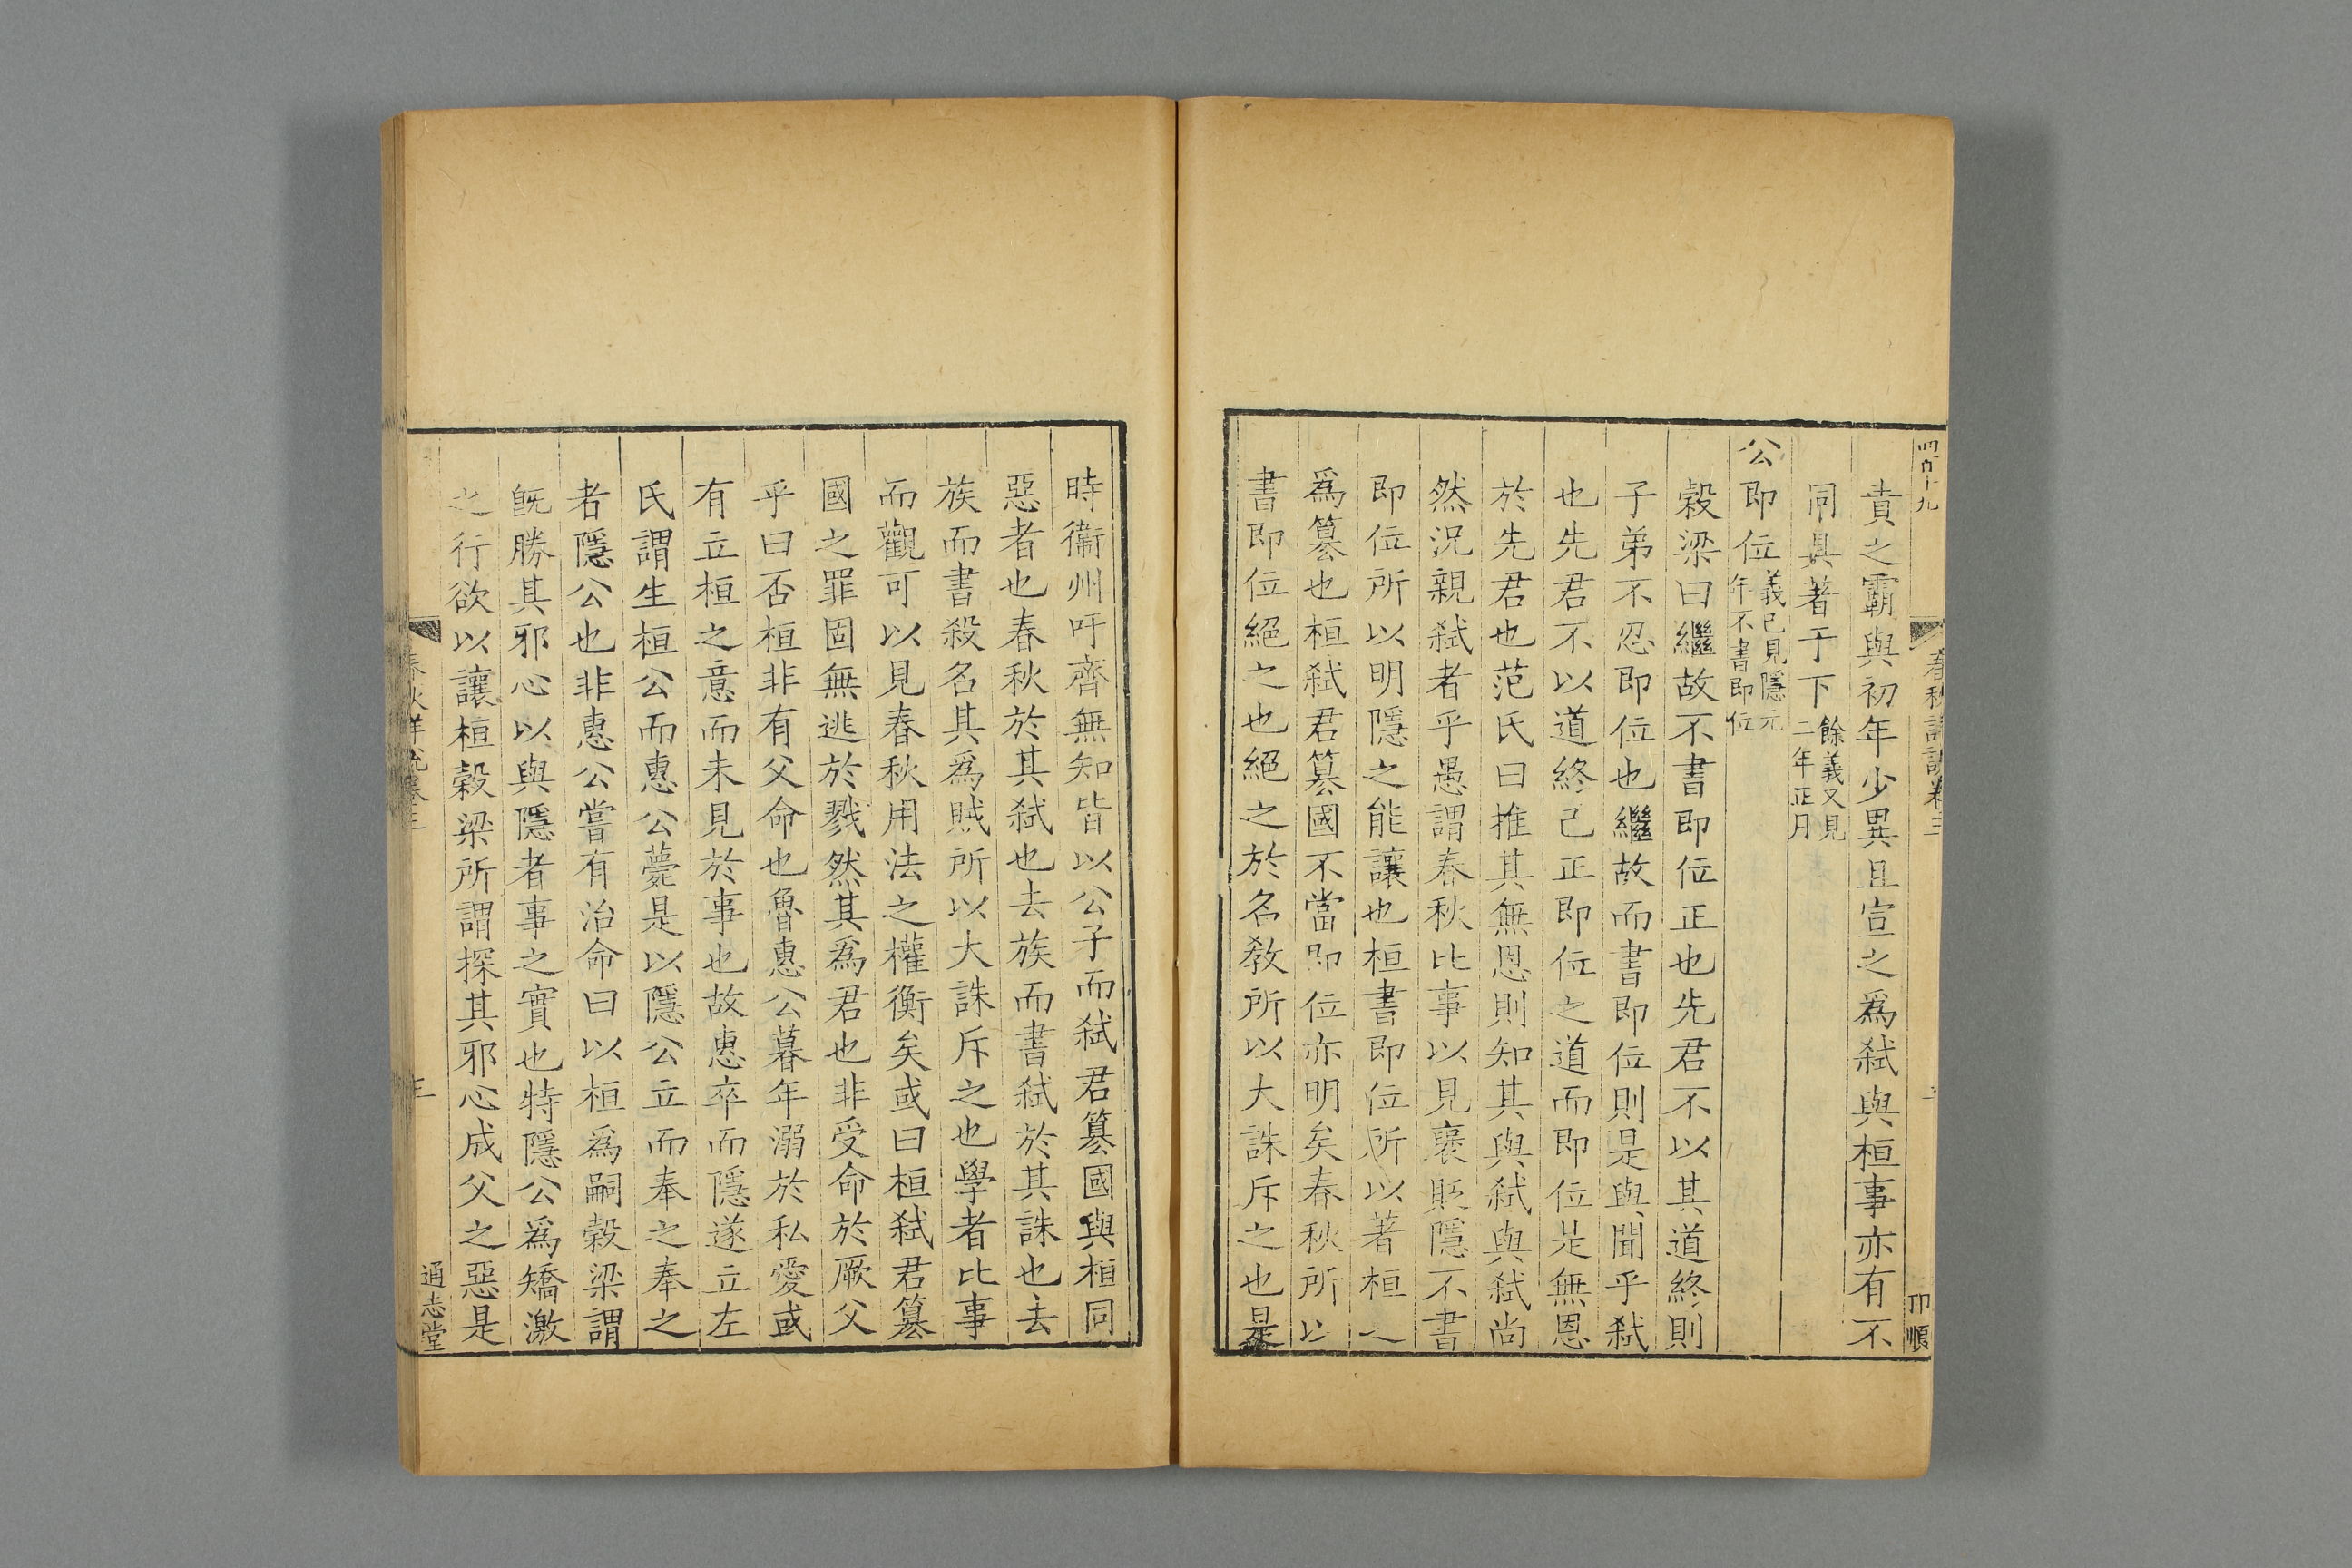 四百十九
春秋詳說卷三
卭順
責之霸與初年少異且宣之爲弑與桓事亦有不
同具著于下餘義又見二年正月
公即位義已見隱元年不書即位
穀梁曰繼故不書即位正也先君不以其道終則
子弟不忍即位也繼故而書即位則是與聞乎弑
也先君不以道終己正即位之道而即位是無恩
於先君也范氏曰推其無恩則知其與弑與弑尚
然況親弑者乎愚謂春秋比事以見褒貶隱不書
即位所以明隱之能讓也桓書即位所以著桓之
爲篡也桓弑君篡國不當即位亦明矣春秋所以
書即位絕之也絕之於名敎所以大誅斥之也是
時衞州吁齊無知皆以公子而弑君篡國與桓同
惡者也春秋於其弑也去族而書弑於其誅也去
族而書殺名其爲賊所以大誅斥之也學者比事
而觀可以見春秋用法之權衡矣或曰桓弑君篡
國之罪固無逃於戮然其爲君也非受命於厥父
乎曰否桓非有父命也魯惠公暮年溺於私愛或
有立桓之意而未見於事也故惠卒而隱遂立左
氏謂生桓公而惠公薨是以隱公立而奉之奉之
者隱公也非惠公嘗有治命曰以桓爲嗣穀梁謂
旣勝其邪心以與隱者事之實也特隱公爲矯激
之行欲以讓桓穀梁所謂探其邪心成父之惡是
春秋詳說卷三
三
通志堂